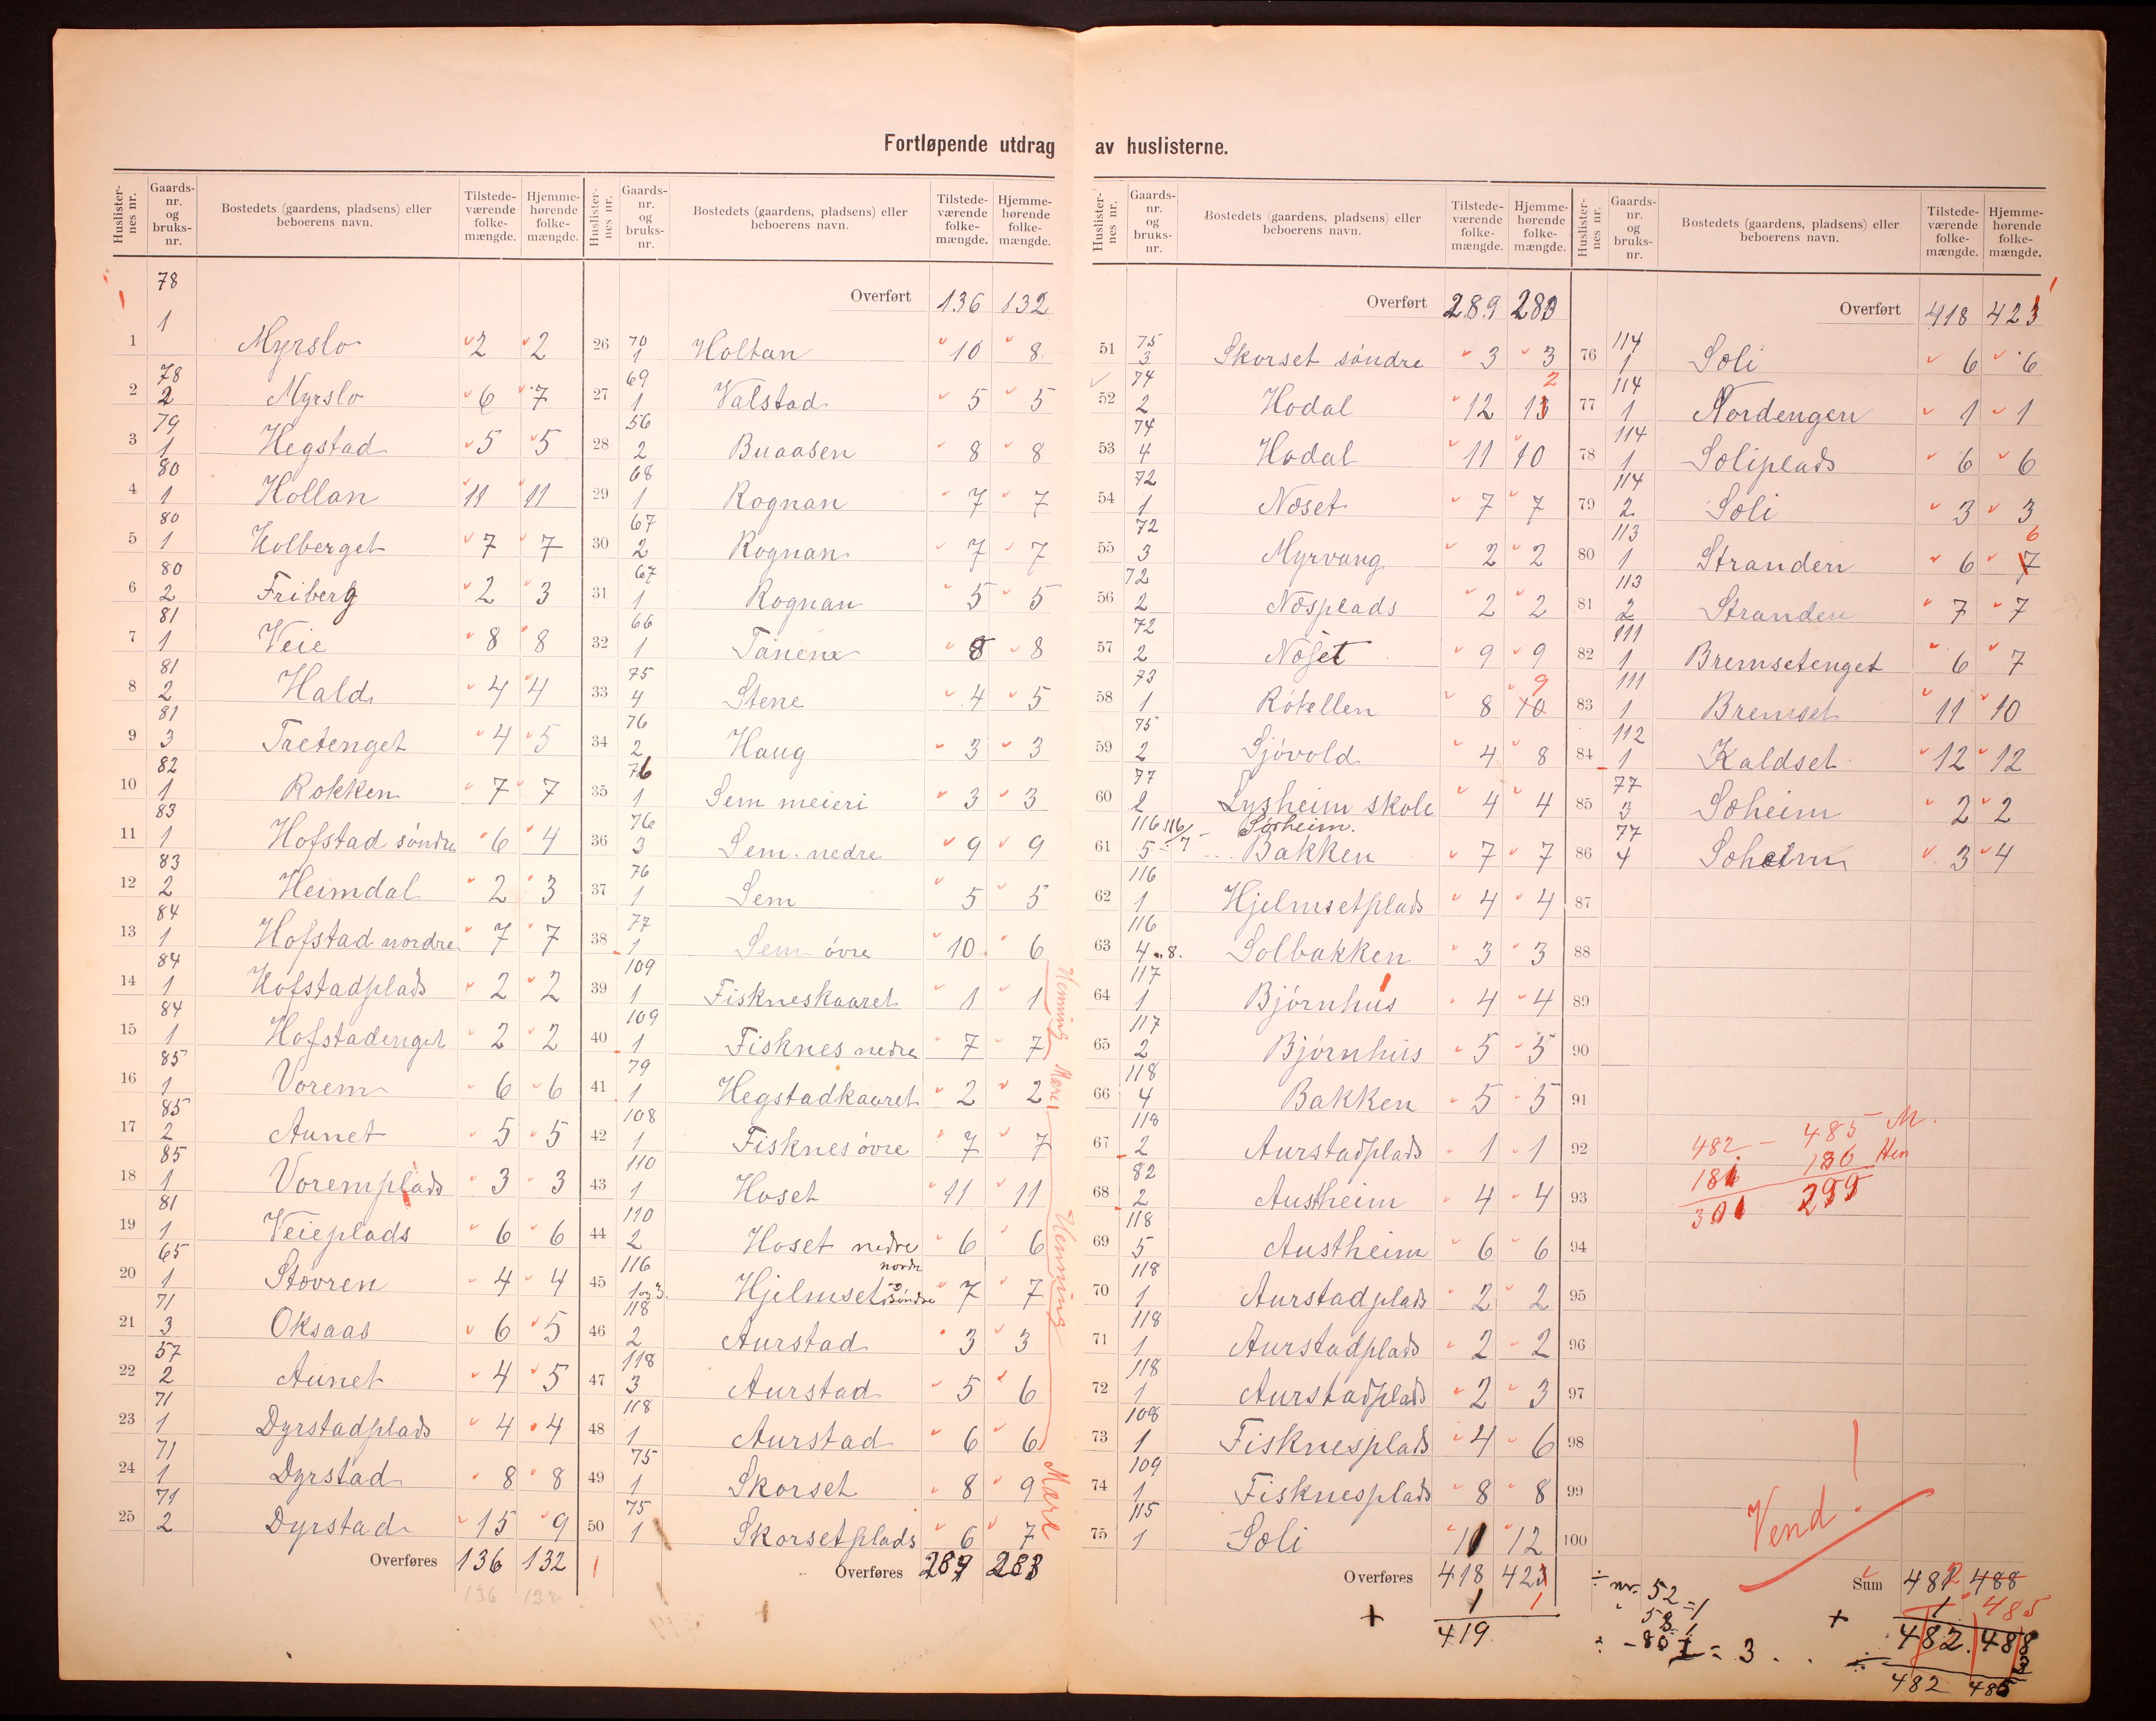 Fortløpende utdrag av huslisterne.
Huslisternes nr. Gaards-nr. og bruks-nr. Bostedets (gaardens, pladsens) eller beboerens navn. Tilstedeværende folkemængde. Hjemmehørende folkemængde.
1 78 1 Myrslo 2 2
2 78 2 Myrslo 6 7
3 79 1 Hegstad 5 5
4 80 1 Hollan 11 11
5 80 1 Holberget 7 7
6 80 2 Friberg 2 3
7 81 1 Veie 8 8
8 81 2 Hald 4 4
9 81 3 Tretenget 4 5
10 82 1 Rokken 7 7
11 83 1 Hofstad söndre 6 4
12 83 2 Heimdal 2 3
13 84 1 Hofstad nordre 7 7
14 84 1 Hofstadplads 2 2
15 84 1 Hofstadenget 2 2
16 85 1 Vorem 6 6
17 85 2 Aunet 5 5
18 85 1 Voremplads 3 3
19 81 1 Veieplads 6 6
20 65 1 Stovren 4 4
21 71 3 Oksaas 6 5
22 57 2 Aunet 4 5
23 71 1 Dyrstadplads 4 4
24 71 1 Dyrstad 8 8
25 71 2 Dyrstad 15 9
Overføres 136 132
136 132
Huslisternes nr. Gaards-nr. og bruks-nr. Bostedets (gaardens, pladsens) eller beboerens navn. Tilstedeværende folkemængde. Hjemmehørende folkemængde.
Overført 136 132
26 70 1 Holtan 10 8
27 69 1 Valstad 5 5
28 56 2 Buaasen 8 8
29 68 1 Rognan 7 7
30 67 2 Rognan 7 7
31 67 1 Rognan 5 5
32 66 1 Tanem 8 8
33 75 4 Stene 4 5
34 76 2 Haug 3 3
35 76 1 Sem meieri 3 3
36 76 3 Sem nedre 9 9
37 76 1 Sem 5 5
38 77 1 Sem óvre 10 6
39 109 1 Fiskneskaaret 1 1
40 109 1 Fisknes nedre 7 7
41 79 1 Hegstadkaaret 2 2
42 108 1 Fisknes óvre 7 7
43 110 1 Hoset 11 11
44 110 2 Hoset nedre 6 6
45 116 1 og 3. Hjelmset nordre og söndre 7 7
46 118 2 Aurstad 3 3
47 118 3 Aurstad 5 6
48 118 1 Aurstad 6 6
49 75 1 Skorset 8 9
50 75 1 Skorsetplads 6 7
Overføres 289 283
Henning Mære Henning Mære
Huslisternes nr. Gaards-nr. og bruks-nr. Bostedets (gaardens, pladsens) eller beboerens navn. Tilstedeværende folkemængde. Hjemmehørende folkemængde.
Overført 289 280
51 75 3 Skorset söndre 3 3
52 74 2 Hodal 12 13 2
53 74 4 Hodal 11 10
54 72 1 Nöset 7 7
55 72 3 Myrvang 2 2
56 72 2 Nösplads 2 2
57 72 2 Nöset 9 9
58 73 1 Rótellen 8 10 9
59 75 2 Sjóvold 4 8
60 77 2 Lysheim skole 4 4
Sörheim.
61 116 5 = 116/7 Bakken 7 7
62 116 1 Hjelmsetplads 4 4
63 116 4 og 8. Solbakken 3 3
64 117 1 Bjórnhus 4 4
65 117 2 Bjórnhus 5 5
66 118 4 Bakken 5 5
67 118 2 Aurstadplads 1 1
68 82 2 Austheim 4 4
69 118 5 Austheim 6 6
70 118 1 Aurstadplads 2 2
71 118 1 Aurstadplads 2 2
72 118 1 Aurstadplads 2 3
73 108 1 Fisknesplads 4 6
74 109 1 Fisknesplads 8 8
75 115 1 Soli 11 12
Overføres 418 423
+ 1 1
419
Huslisternes nr. Gaards-nr. og bruks-nr. Bostedets (gaardens, pladsens) eller beboerens navn. Tilstedeværende folkemængde. Hjemmehørende folkemængde.
Overført 418 423
76 114 1 Soli 6 6
77 114 1 Nordengen 1 1
78 114 1 Soliplads 6 6
79 114 2 Soli 3 3
80 113 1 Stranden 6 7 6
81 113 2 Stranden 7 7
82 111 1 Bremsetenget 6 7
83 111 1 Bremset 11 10
84 112 1 Kaldset 12 12
85 77 3 Soheim 2 2
86 77 4 Soheim 3 4
87
88
89
90
91
92 482 - 485 M.
181 186 Hen
93 301 299
94
95
96
97
98
99
100
Vend.
Sum 482 488
1 485
÷ nr. 52 = 1
58 1
÷ - 80 1 = 3
+ 482. 488
÷ 3
482 485